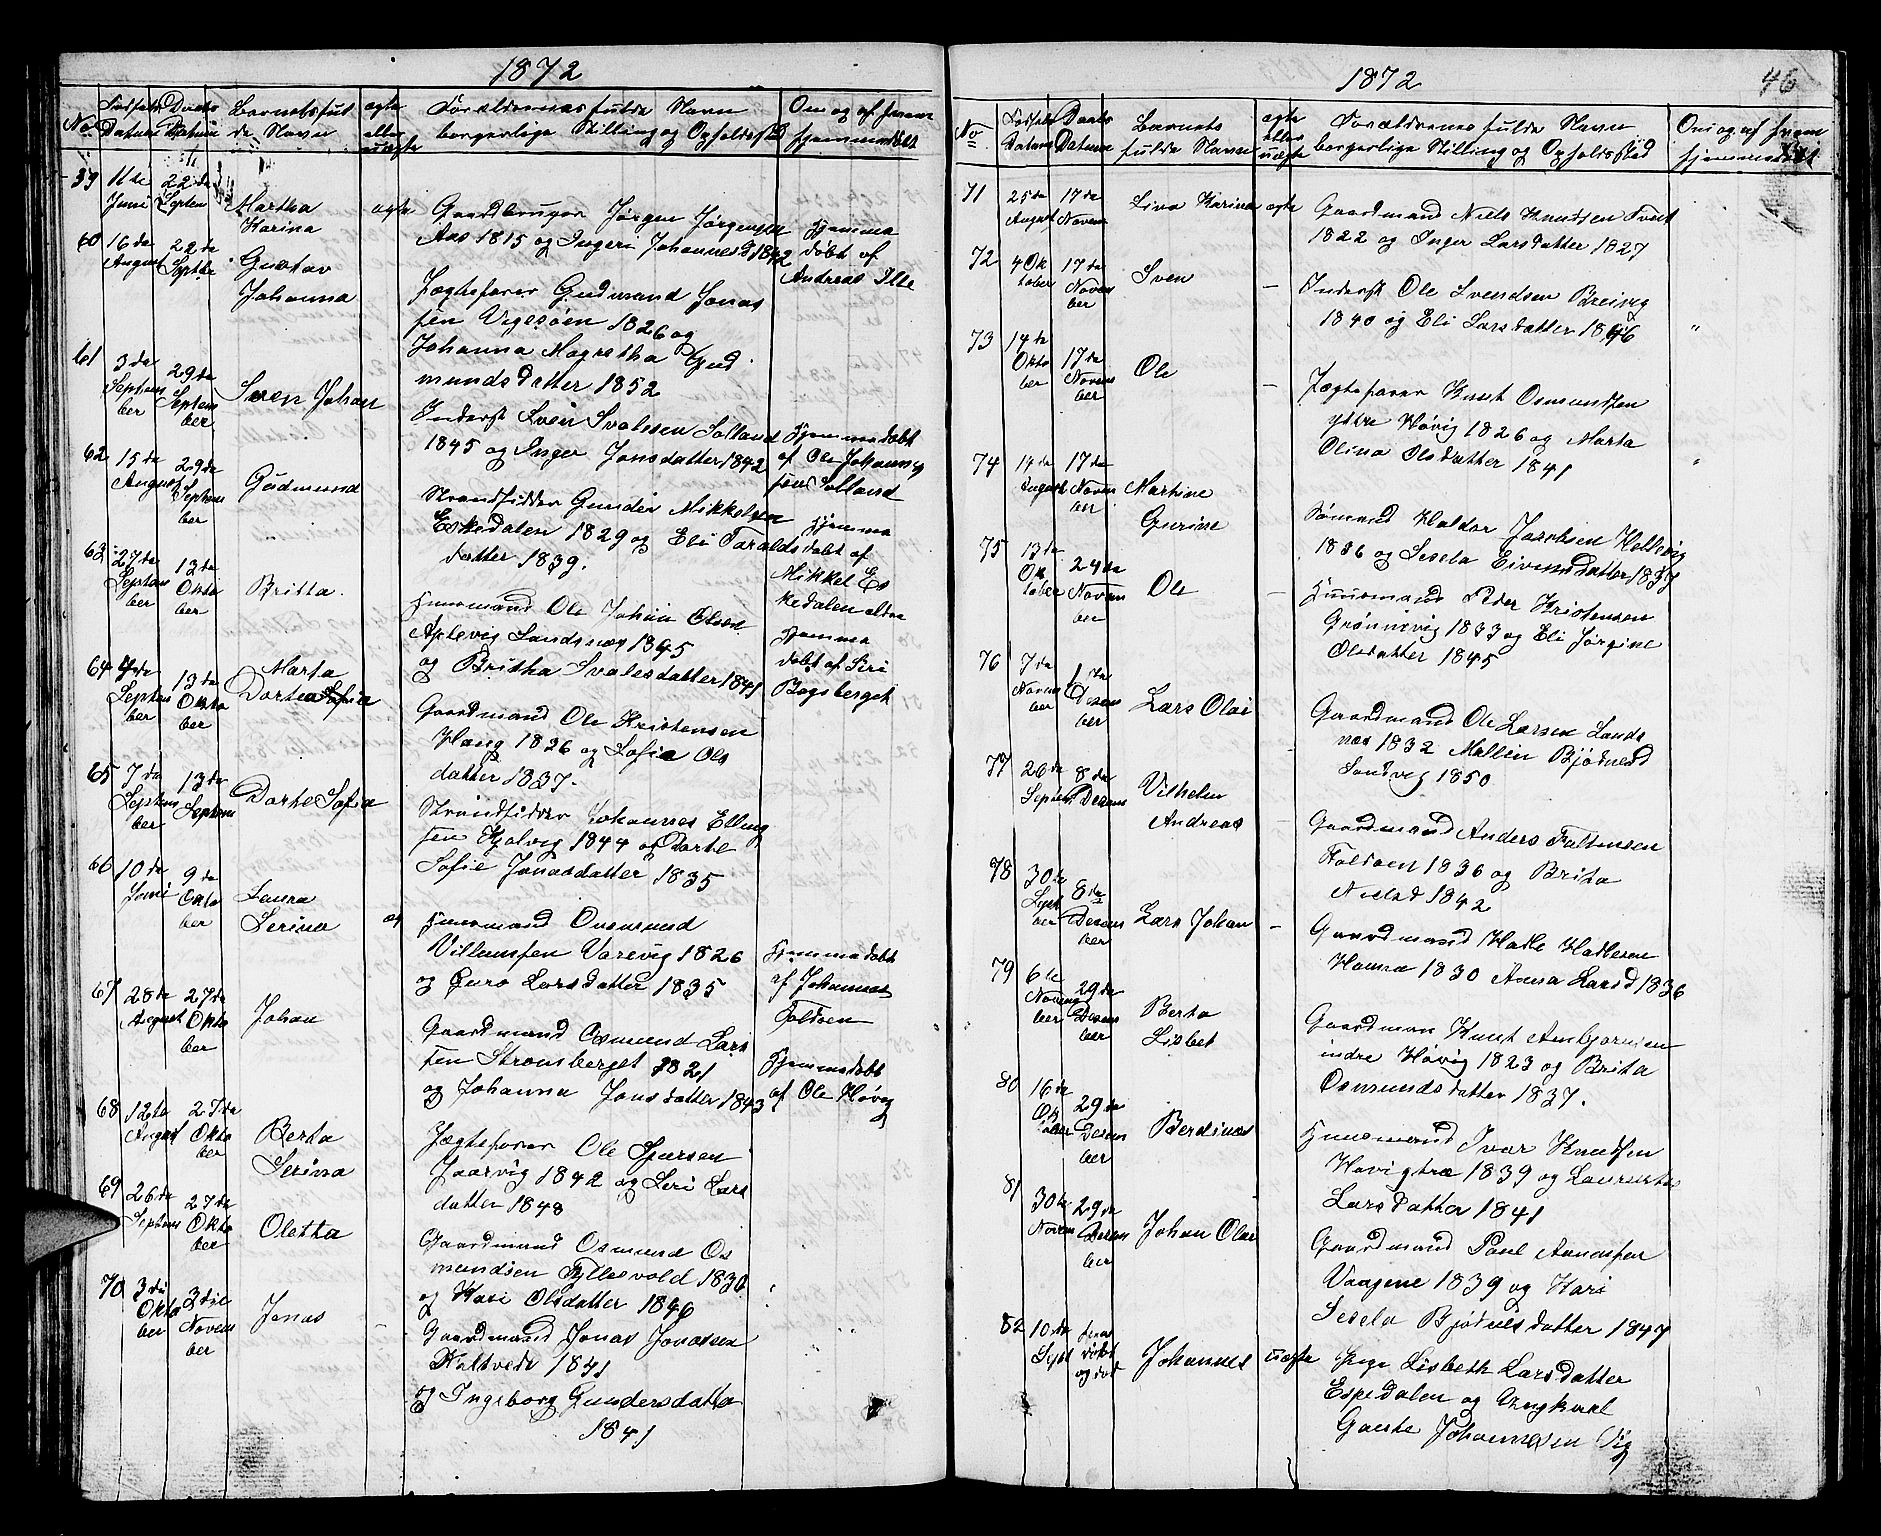 1872
No
Fødsels Datum
Daabs Datum
Barnets ful de Navn
ægte eller uægte
Forældrenes fulde Navn borgerlige Stilling og Opholdsted
Om og af hvem hjemmedøbt
59
11te Juni
22de Septem
Martha Karina
ægte
Gaardbruger Jørgen Jørgensen
Aas 1815 og Ingeri Johannesd 1842
Hjemme døbt af Andreas
60
16de August
22de Septbe
Gustav Johanna
Jægtefører Gudmund Jonas
sen Vigesøen 1826 og
Johanna Magretha Gud
mundsdatter 1852
61
3de Septem ber
29de Septem ber
Søren Johan
Inderst Sven Svalesen Solland
1845 og Inger Jonsdatter 1842
Hjemmedøbt af Ole Johannes sen Solland
62
15de August
29de Septem ber
Gudmund
Strandsidder Gunder Mikkelsen
Eskedalen 1829 og Eli Taralds
datter 1839.
Hjemme døbt af Mikkel Es kedalen eldre
63
27de Septem ber
13de Okto ber
Britta
Huusmand Ole Johan Olsen
Aplevig Landsnes 1845
og Britha Svalesdatter 1841
Hjemme døbt af Siri Bogsberget
64
4de Septem ber
13de Okto ber
Marta Dortea Sofia
Gaardmand Ole Kristensen
Haug 1826 og Sofie Ols
datter 1837.
65
7de Septem ber
13de Septem
Dorte Sofia
Strandsidder Johannes Elling
sen Hjelvig 1844 og Dorte
Sofie Jonasdatter 1835
66
10de Juni
9de Okto ber
Laura Serina
æg
Huusmand Osmund
Villumsen Varevig 1826
og Guro Larsdatter 1835
Hjemmedøbt af Johannes Foldøen
67
28de August
27de Okto ber
Johan
Gaardmand Osmund Lars
sen Stronsberget 1821
og Johanna Jonsdatter 1843
Hjemmedøbt af Ole Høvig
68
12te August
27de Okto ber
Berta Serina
Jægtefører Ole Sjursen
Jaarvig 1842 og Seri Lars
datter 1848
69
26de Septem
27de Okto ber
Oletha
Gaardmand Osmund Os
mundsen Tyllesvold 1830
og Kari Olsdatter 1846
70
3die Okto ber
3die Novem ber
Jonas
-
Gaardmand Jonas Jonassen
Holtvedt 1841
og Ingeborg Gundersdatter
1841
1872
46
No
Fødsels Datum
Daabs Datum
Barnets fulde Navn
ægte eller uægte
Forældrenes fulde Navn borgerlige Stilling og Opholdsted
Om og af hvem hjemmedøbt
71
25de August
17de Novem
Liva Karina
ægte
Gaardmand Niels Knudsen Tveit
1822 og Inger Larsdatter 1827
72
4 Ok tober
17de Novem ber
Sven
-
Inderst Ole Svendsen Breivig
1840 og Eli Larsdatter 1846
"
73
14de Okto ber
17de Novem ber
Ole
-
Jægtefører Knut Osmundsen
ytre Høvig 1826 og Marta
Olina Olsdatter 1841
"
74
14de August
17de Novem ber
Martine Gurine
Sømand Haldor Jacobsen Hellevig
1836 og Sesela Eivendsdatter 1837
75
13de Ok tober
24de Novem ber
Ole
-
Huusmand Peder Kristensen
Grønnevig 1833 og Eli Jørgine
Olsdatter 1845
76
7de Novem ber
1ste Desem ber
Lars Olai
Gaardmand Ole Larsen Lands
nes 1832 Mallin Bjødnesd
Sandvig 1850
77
26de Septem
8de Desem
Vilhelm Andreas
-
Gaardmand Anders Faltensen
Foldøen 1836 og Brita
Nielsd 1842
78
30te Sept ber
8de Desem ber
Lars Johan
-
Gaardmand Hadle Hadlesen
Hauna 1830 Anna Larsd 1836
79
6te Novem ber
29de Desem ber
Berta Lisbet
Gaardman Knut Ambjørnsen
indre Høvig 1823 og Brita
Osmundsdatter 1837.
80
16de Ok tober
29de Desem ber
Berdines
Huusmand Ivar Knudsen
Høvigtræ 1839 og Laurentse
Larsdatter 1841
81
30te Novem
29de Desem ber
Johan Olai
Gaardmand Poul Aanensen
Vaagene 1839 og Kari
Sesela Bjødnesdatter 1847
82
10de Sept
hjem døbt og død
Johannes
uægte
Pige Lisbeth Larsdatter
Espedalen og Ungkarl
Gaute Johannesen Vig